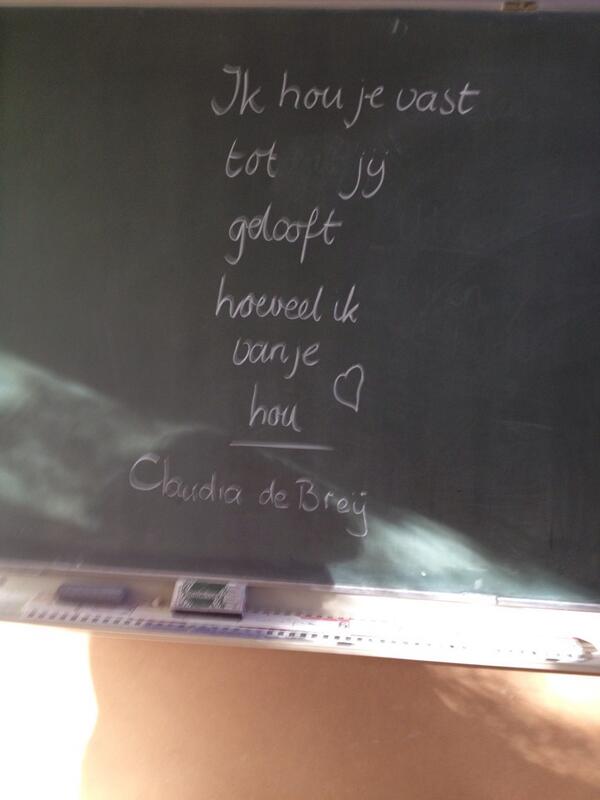 Ik hou je vast
tot jij
gelooft
hoeveel ik
van je
hou
Claudia de Breij